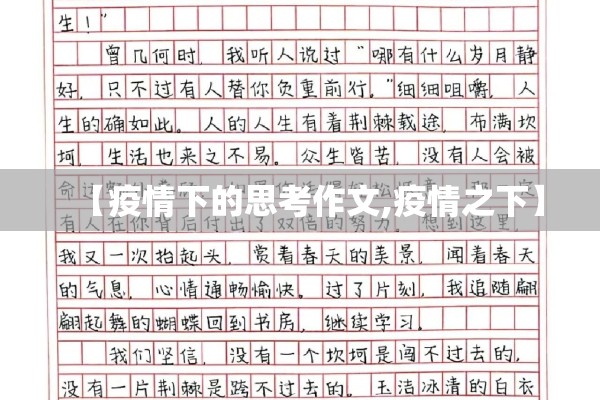 生！"
曾几何时，我听人说过"哪有什么岁月静
好，只不过有人替你负重前行。"细细咀嚼，人
生的确如此。人的人生有着荆棘载途，布满坎
坷，生活也来之不易。众生皆苦，没有人会被
命
【疫情下的思考作文,疫情之下】
有人在你背后付出了双倍的努力。想到这里，
我又一次抬起头，赏着春天的美景，闻着春天
的气息，心情通畅愉快。过了片刻，我追随翩
翩起舞的蝴蝶回到书房，继续学习。
我们坚信，没有一个坎坷是闯不过去的，
没有一片荆棘是跨不过去的。玉洁冰清的白衣